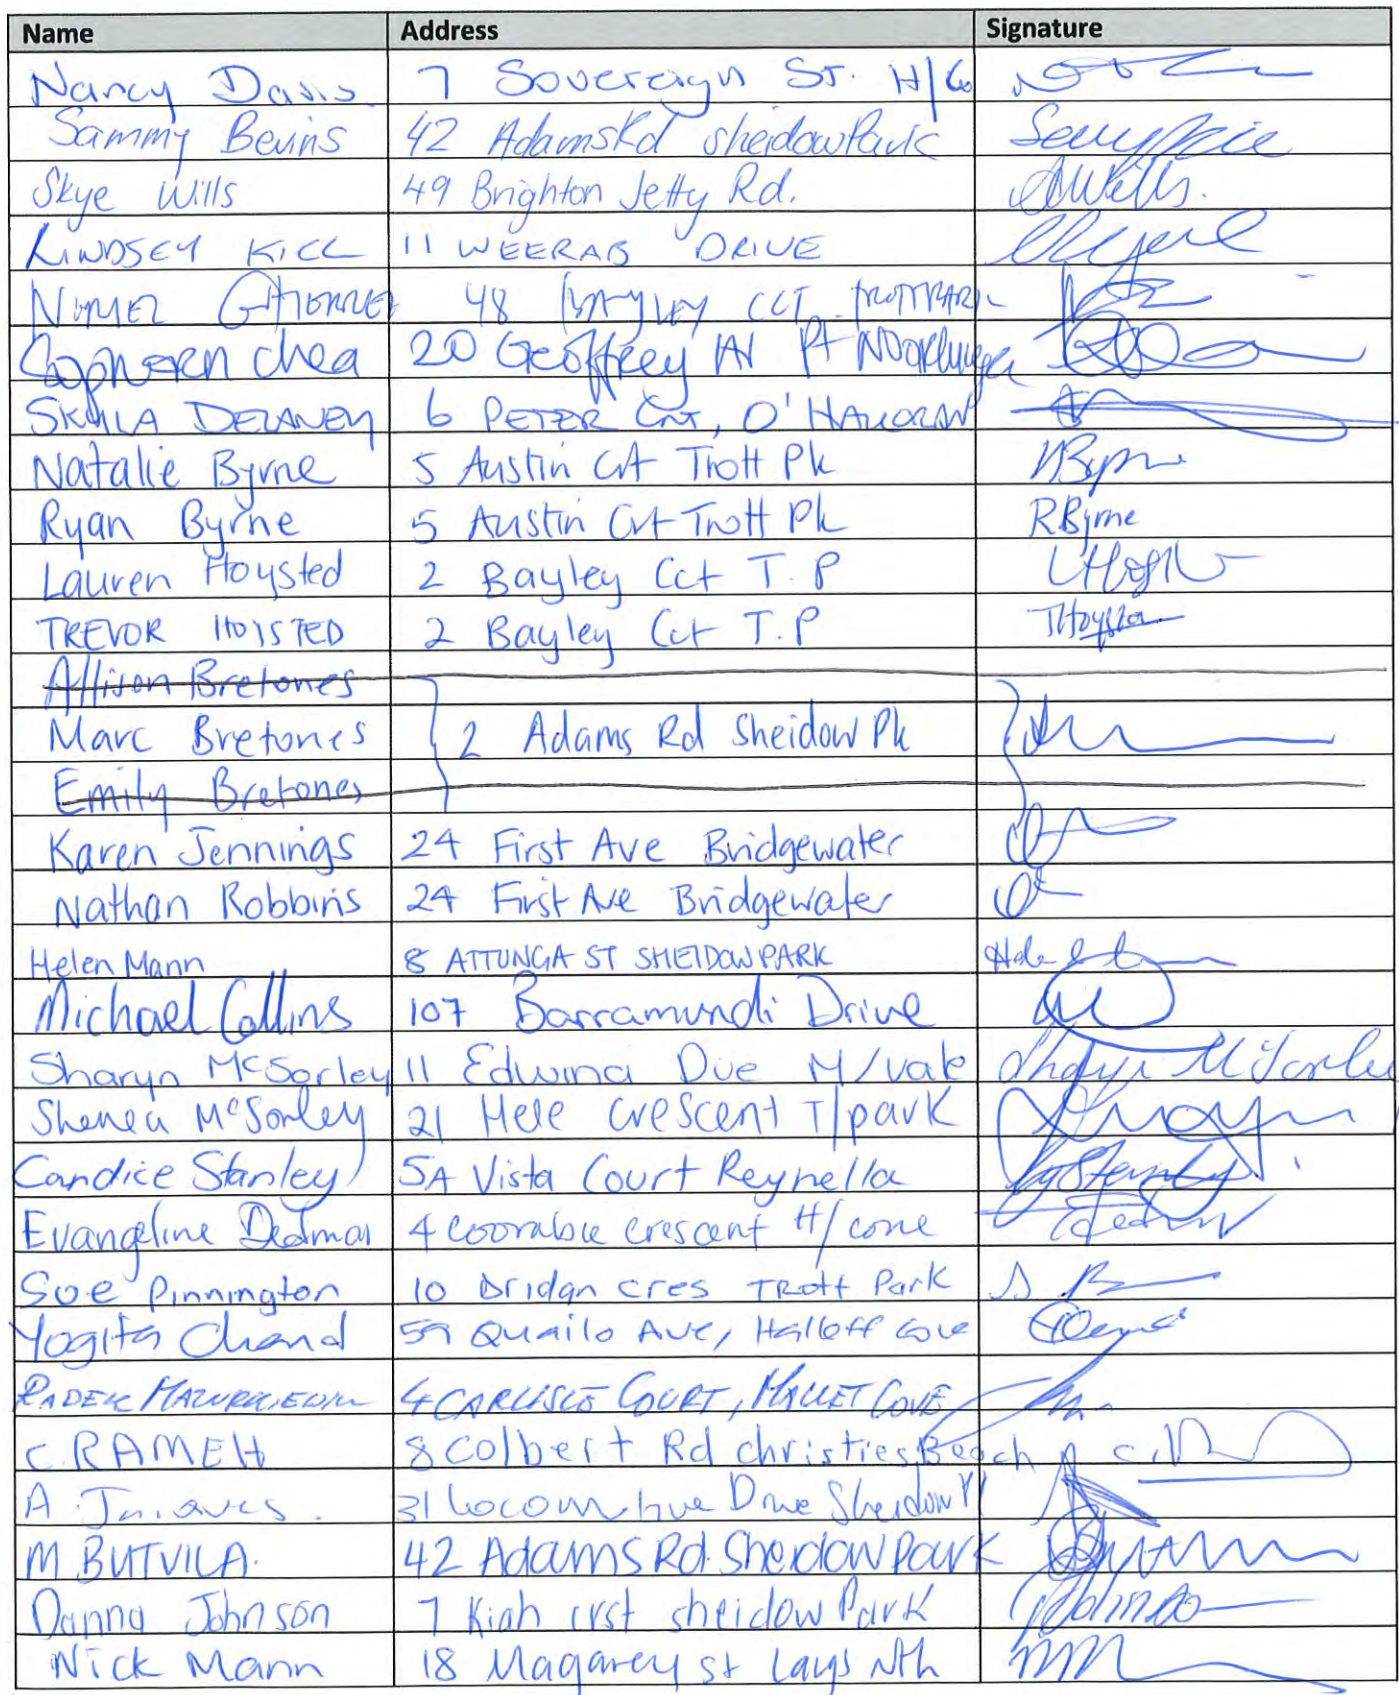 Name Address Signature
Nancy Davis 7 Sovereign St. H/Co
Sammy Bevins 42 Adams Rd Sheidow Park
Skye Wills 49 Brighton Jetty Rd. SWills.
LINDSEY KILL 11 WEERAB DRIVE
48 BAYLEY CCT TROTTPARK
Sophorn Chea 20 Geoffrey Av Pt Noarlunga
SKYLA DELANEY 6 PETER CRT, O'HALLORAN
Natalie Byrne 5 Austin Crt Trott Pk NByrne
Ryan Byrne 5 Austin Crt Trott Pk RByrne
Lauren Hoysted 2 Bayley Cct T.P
TREVOR HOYSTED 2 Bayley Cct T.P THoysted
Allison Bretones
Marc Bretones 2 Adams Rd Sheidow Pk
Emily Bretones
Karen Jennings 24 First Ave Bridgewater
Nathan Robbins 24 First Ave Bridgewater
Helen Mann 8 ATTUNGA ST SHEIDOW PARK
Michael Collins 107 Barramundi Drive
Sharyn McSorley 11 Edwina Dve M/vale Sharyn McSorley
Shenea McSorley 21 Hele Crescent T/park
Candice Stanley 5A Vista Court Reynella
Evangeline Dedmar 4 Coorabie crescent H/cove
Sue Pinnington 10 Dridan cres Trott Park
Yogita Chand 59 Quailo Ave, Hallett Cove
RADEK 4 CARLISLE COURT, HALLET COVE
C. RAMEH 8 Colbert Rd christies Beach
A 31 Locomotive Drive Sheidow Pk
M BUTVILA. 42 Adams Rd. Sheidow Park
Danna Johnson 7 Kiah crst sheidow Park
Nick Mann 18 Magarey st Largs Nth